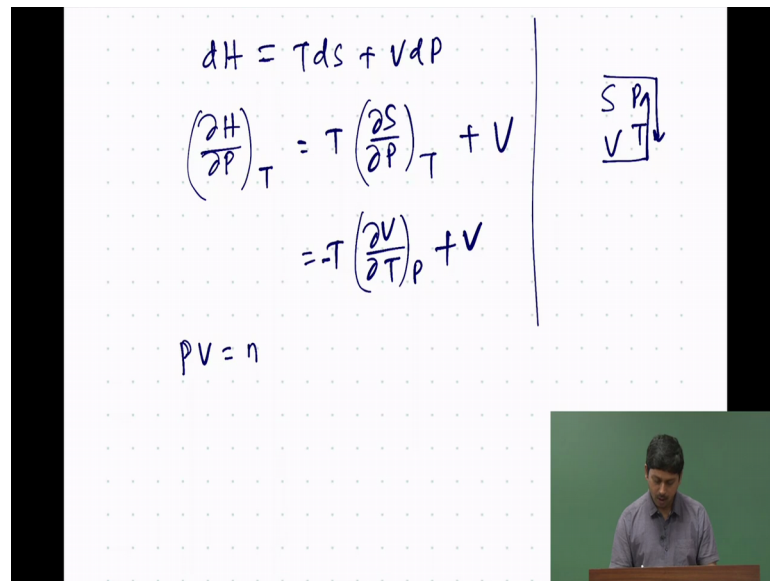 dH = TdS + VdP
(∂H/∂P)_T = T (∂S/∂P)_T + V
= -T (∂V/∂T)_P + V
PV = n
S P
V T